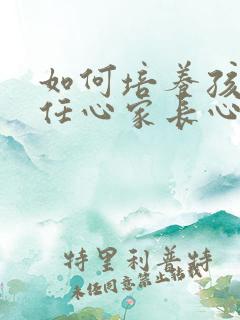 如何培养孩
任心家长心
特里利普特
未经同意禁止转载